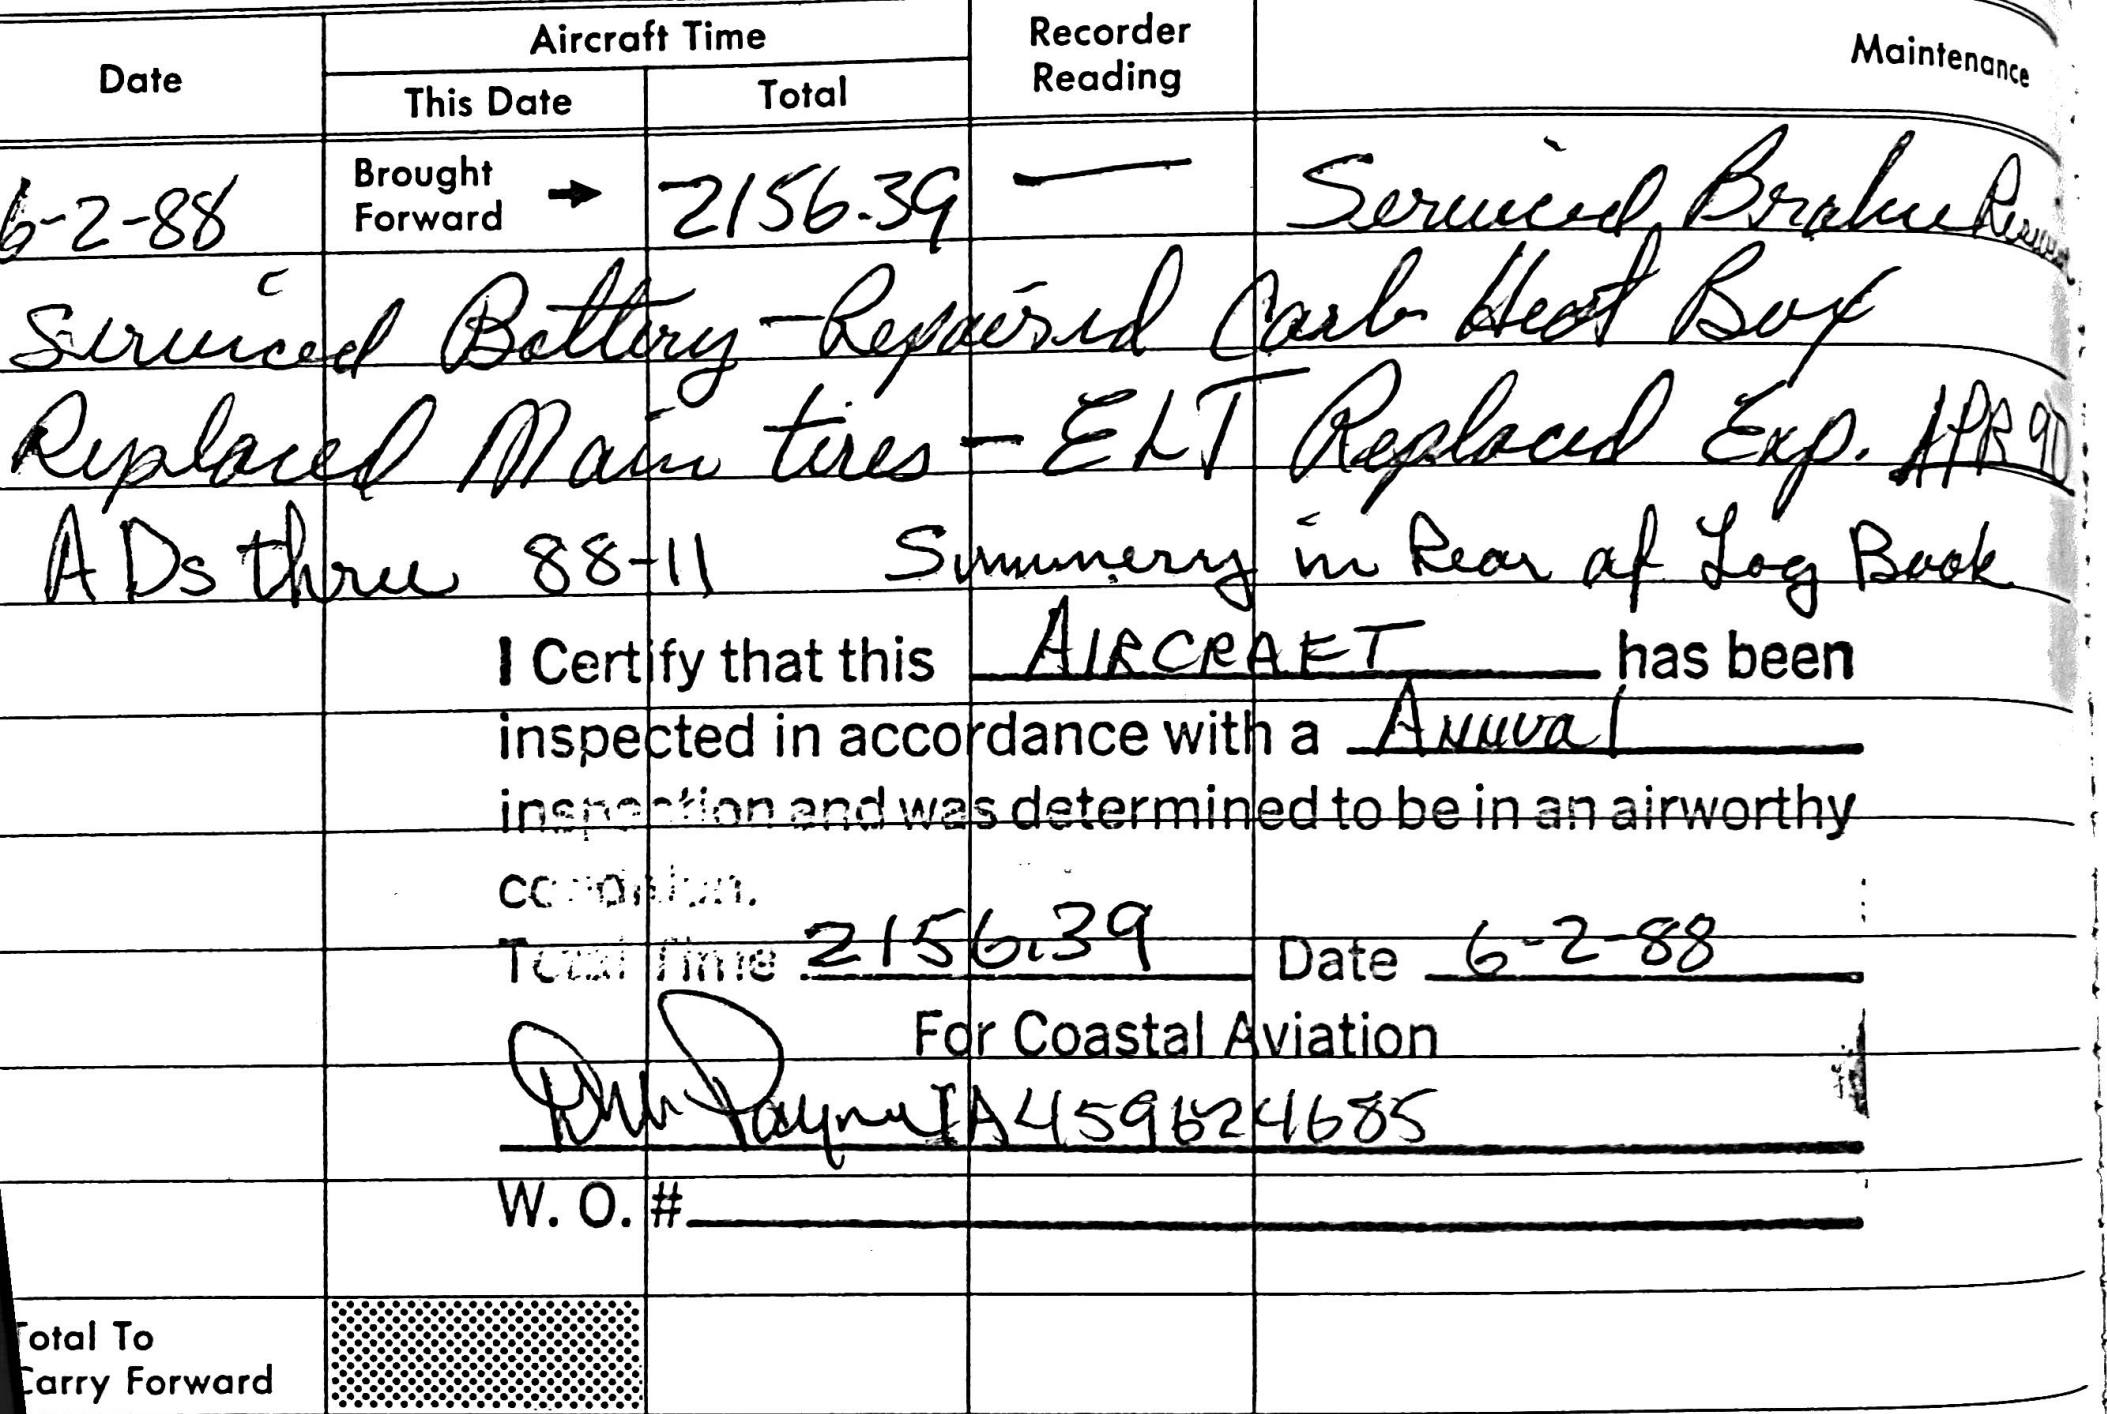 Date Aircraft Time Recorder Reading Maintenance
This Date Total
6-2-88 Brought Forward → 2156.39 — Serviced Brake
Serviced Battery - Repaired Carb Heat Box
Replaced Main tires - ELT Replaced Exp. APR 90
ADs thru 88-11 Summery in Rear of Log Book
I Certify that this AIRCRAFT has been
inspected in accordance with a Annual
inspection and was determined to be in an airworthy
condition.
Total Time 2156.39 Date 6-2-88
For Coastal Aviation
Payne IA459624685
W. O. #
Total To
Carry Forward